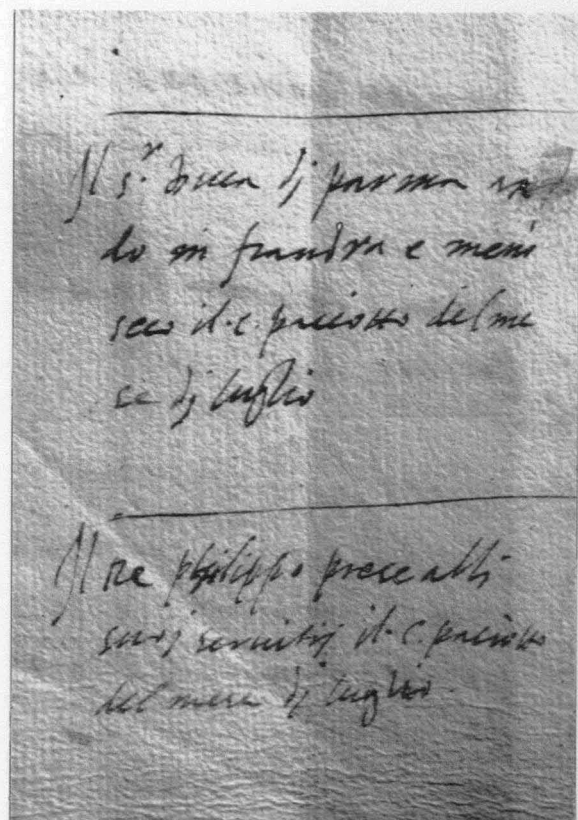 Il s.r ducca dj parma an
do in fiandra e meno
seco il .c. paciotto del me
se dj luglio
Il re philippo prese alli
suoj servitij il .c. paciotto
del mese dj luglio